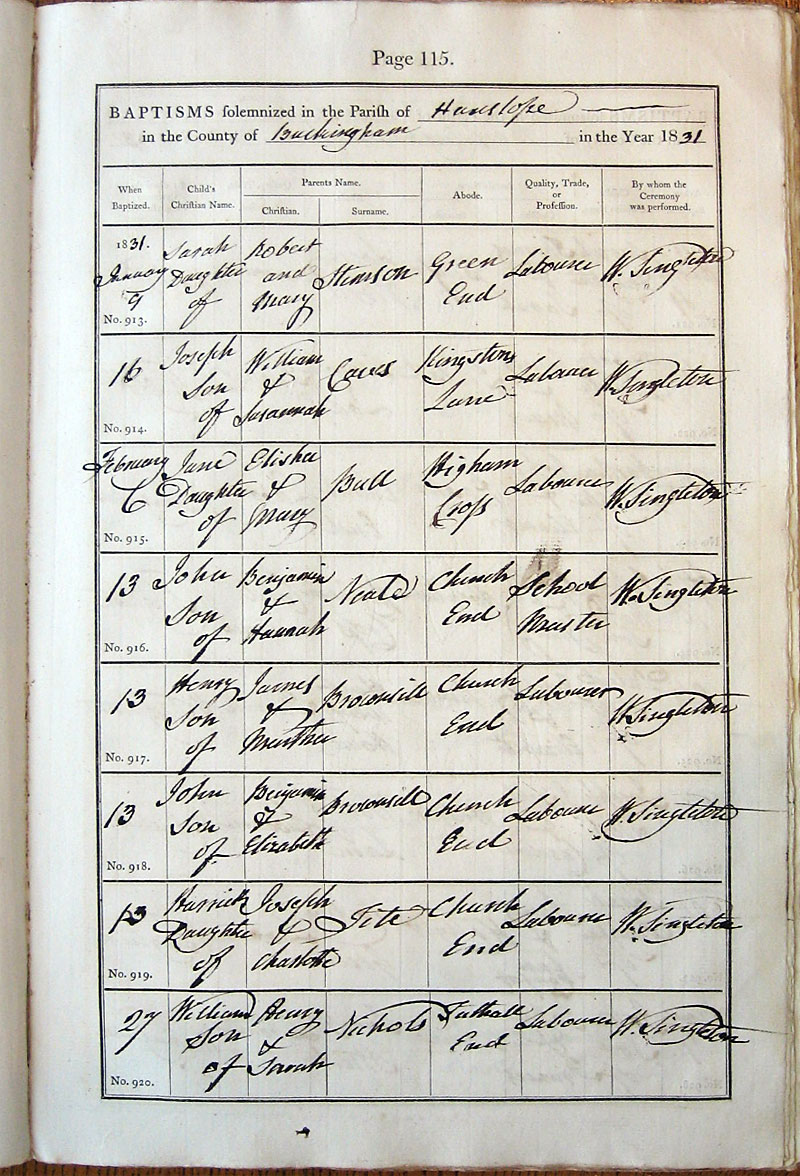 Page 115.
BAPTISMS solemnized in the Parish of Hanslope
in the County of Buckingham in the Year 1831
When Baptized. Child's Christian Name. Parents Name. Abode. Quality, Trade, or Profession. By whom the Ceremony was performed.
Christian. Surname.
1831. Sarah Robert
January Daughter and Stimson Green Labourer W. Singleton
9 of Mary End
No. 913.
16 Joseph William Caves Kingstons Labourer W. Singleton
Son & Lane
of Susannah
No. 914.
February Jane Elisha Bull Higham Labourer W. Singleton
6 Daughter & Cross
of Mary
No. 915.
13 John Benjamin Neale Church School W. Singleton
Son & End Master
of Hannah
No. 916.
13 Henry James Brownsill Church Labourer W. Singleton
Son & End
of Martha
No. 917.
13 John Benjamin Brownsill Church Labourer W. Singleton
Son & End
of Elizabeth
No. 918.
13 Harriet Joseph Tite Church Labourer W. Singleton
Daughter & End
of Charlotte
No. 919.
27 William Henry Nichols Tathall Labourer W. Singleton
Son & End
of Sarah
No. 920.